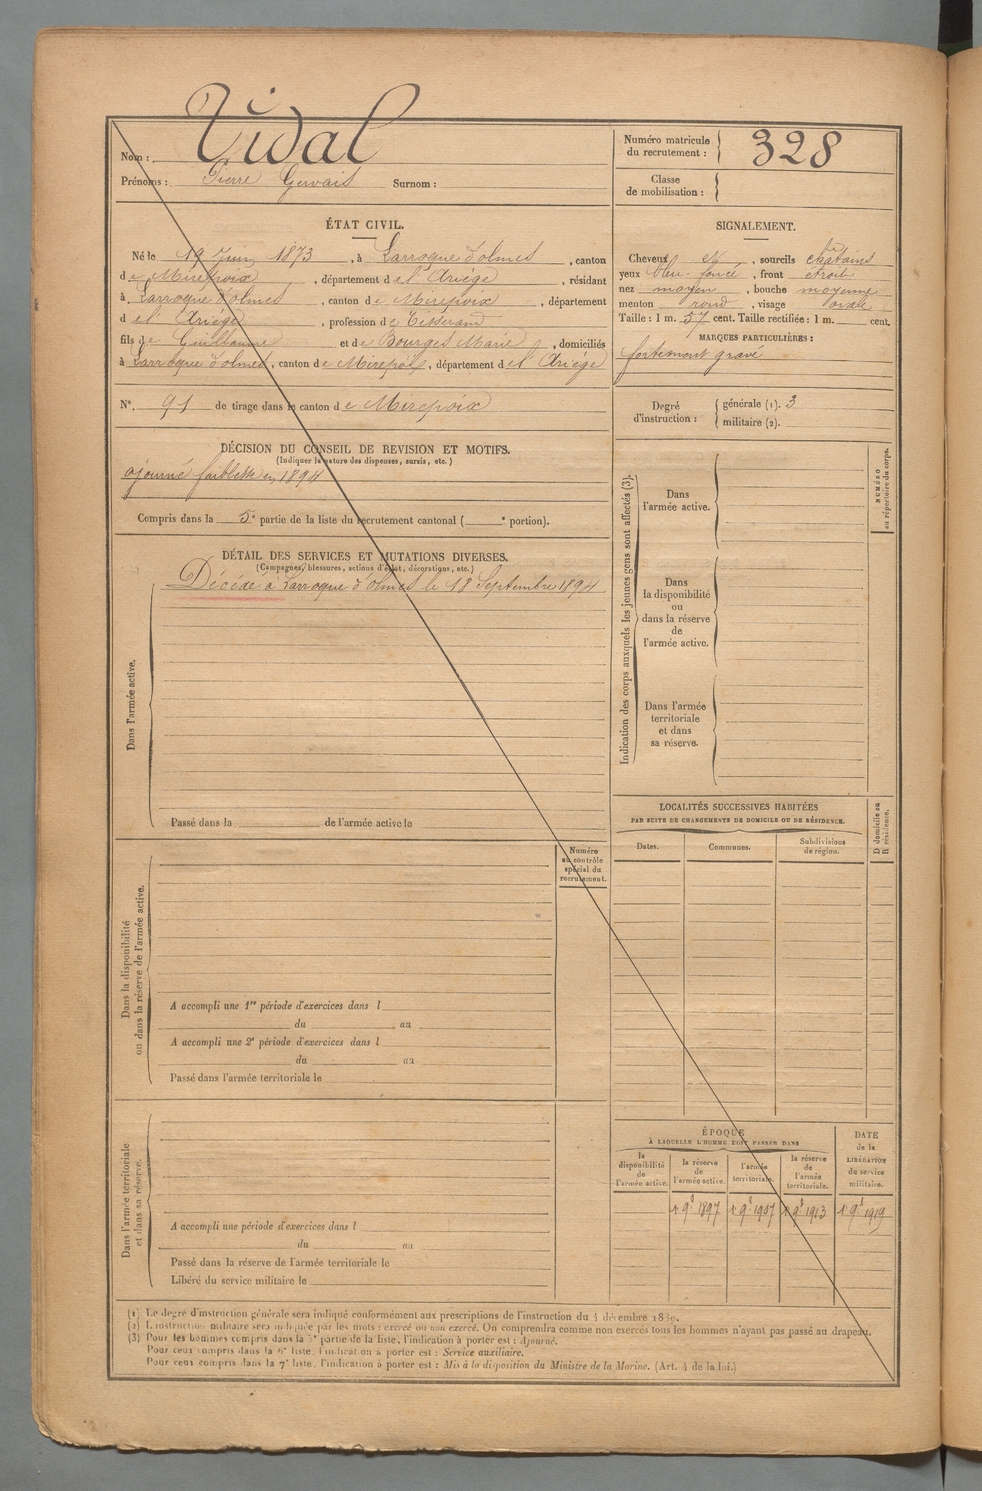 Nom : Vidal
Prénoms : Pierre Gervais Surnom :
Numéro matricule du recrutement : 328
Classe de mobilisation :
ÉTAT CIVIL.
Né le 19 Juin 1873, à Larroque d'olmes, canton
de Mirepoix, département de l'Ariège, résidant
à Larroque d'olmes, canton de Mirepoix, département
de l'Ariège, profession de Tisserand
fils de Guillaume et de Bourges Marie, domiciliés
à Larroque d'olmes, canton de Mirepoix, département de l'Ariège
N° 91 de tirage dans le canton de Mirepoix
SIGNALEMENT.
Cheveux et, sourcils chatains
yeux bleu foncé, front étroit
nez moyen, bouche moyenne
menton rond, visage ovale
Taille : 1 m. 57 cent. Taille rectifiée : 1 m. cent.
MARQUES PARTICULIÈRES :
fortement gravé
Degré d'instruction : générale (1). 3
militaire (2).
DÉCISION DU CONSEIL DE REVISION ET MOTIFS.
(Indiquer la nature des dispenses, sursis, etc.)
ajourné faiblesse en 1894
Compris dans la 5e partie de la liste du recrutement cantonal ( e portion).
DÉTAIL DES SERVICES ET MUTATIONS DIVERSES.
(Campagnes, blessures, actions d'éclat, décorations, etc.)
Décédé à Larroque d'olmes le 18 Septembre 1894
Dans l'armée active.
Passé dans la de l'armée active le
Indication des corps auxquels les jeunes gens sont affectés (3).
NUMÉRO au répertoire du corps.
Dans l'armée active.
Dans la disponibilité ou dans la réserve de l'armée active.
Dans l'armée territoriale et dans sa réserve.
LOCALITÉS SUCCESSIVES HABITÉES
PAR SUITE DE CHANGEMENTS DE DOMICILE OU DE RÉSIDENCE.
D domicile ou R résidence.
Dates. Communes. Subdivisions de région.
Numéro au contrôle spécial du recrutement.
Dans la disponibilité ou dans la réserve de l'armée active.
A accompli une 1re période d'exercices dans l
du au
A accompli une 2e période d'exercices dans l
du au
Passé dans l'armée territoriale le
Dans l'armée territoriale et dans sa réserve.
A accompli une période d'exercices dans l
du au
Passé dans la réserve de l'armée territoriale le
Libéré du service militaire le
ÉPOQUE
À LAQUELLE L'HOMME DOIT PASSER DANS
la disponibilité de l'armée active.
la réserve de l'armée active.
l'armée territoriale.
la réserve de l'armée territoriale.
DATE de la LIBÉRATION du service militaire.
1r 9b 1897 1r 9b 1907 1r 9b 1913 1r 9b 1919
(1) Le degré d'instruction générale sera indiqué conformément aux prescriptions de l'instruction du 4 décembre 1889.
(2) L'instruction militaire sera indiquée par les mots : exercé ou non exercé. On comprendra comme non exercés tous les hommes n'ayant pas passé au drapeau.
(3) Pour les hommes compris dans la 5e partie de la liste, l'indication à porter est : Ajourné.
Pour ceux compris dans la 6e liste, l'indication à porter est : Service auxiliaire.
Pour ceux compris dans la 7e liste, l'indication à porter est : Mis à la disposition du Ministre de la Marine. (Art. 4 de la loi.)